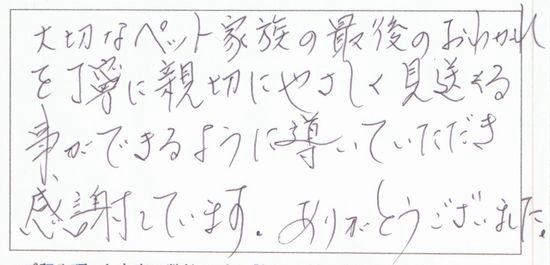 大切なペット家族の最後のおわかれ
を丁寧に親切にやさしく見送る
事ができるように導いていただき
感謝しています。ありがとうございました。